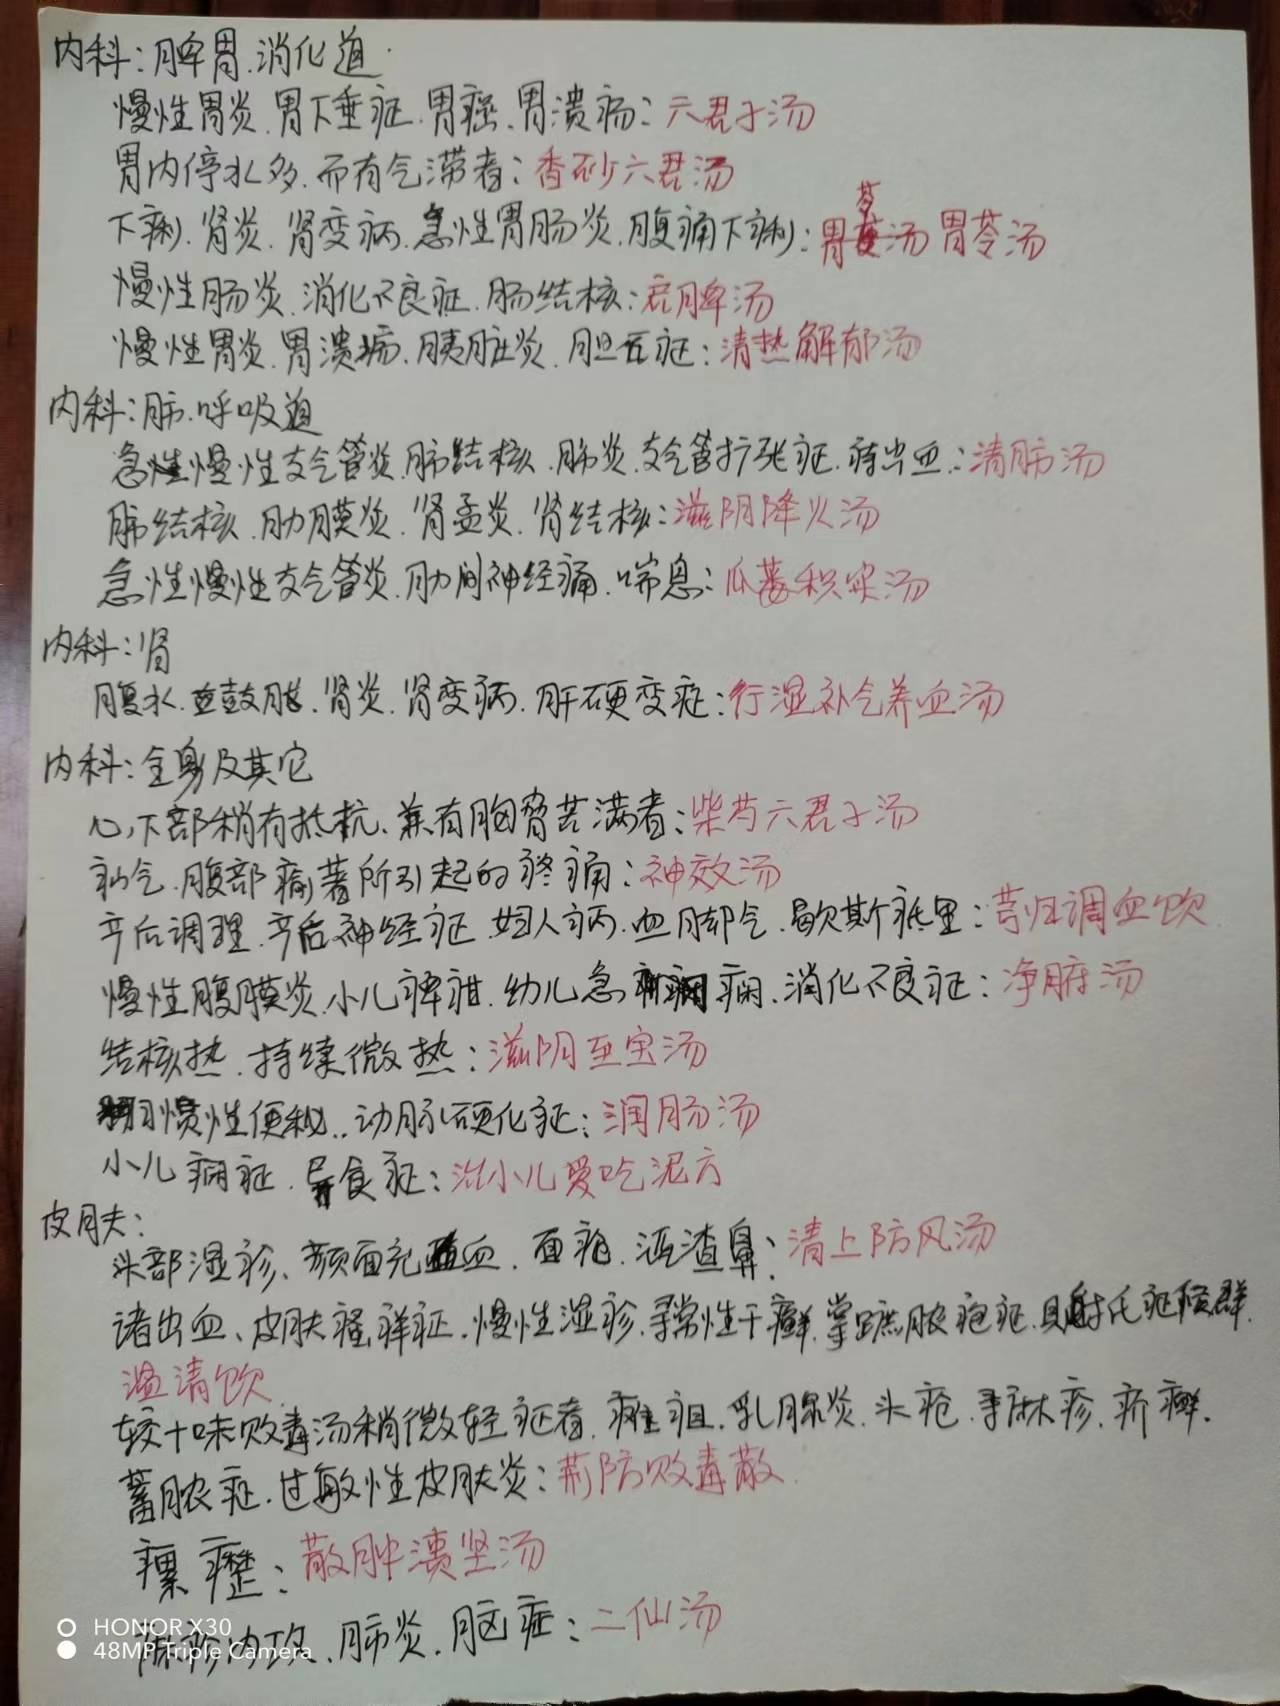 内科:脾胃.消化道.
慢性胃炎.胃下垂症.胃癌.胃溃疡:六君子汤
胃内停水多.而有气滞者:香砂六君汤
下痢.肾炎.肾变病.急性胃肠炎.腹痛下痢:胃苓汤 胃苓汤
慢性肠炎.消化不良症.肠结核:启脾汤
慢性胃炎.胃溃疡.胰脏炎.胆石症:清热解郁汤
内科:肺.呼吸道
急性慢性支气管炎.肺结核.肺炎.支气管扩张症.诸出血:清肺汤
肺结核.肋膜炎.肾盂炎.肾结核:滋阴降火汤
急性慢性支气管炎.肋间神经痛.喘息:瓜蒌枳实汤
内科:肾
腹水.鼓胀.肾炎.肾变病.肝硬变症:行湿补气养血汤
内科:全身及其它
心下部稍有抵抗、兼有胸胁苦满者:柴芍六君子汤
疝气.腹部痛著所引起的疼痛:神效汤
产后调理.产后神经症.妇人病.血脚气.歇斯底里:芎归调血饮
慢性腹膜炎.小儿脾疳.幼儿急痫.消化不良症:净腑汤
结核热.持续微热:滋阴至宝汤
习惯性便秘..动脉硬化症:润肠汤
小儿病症.异食症:治小儿爱吃泥方
皮肤:
头部湿疹、颜面充血.面疱.酒渣鼻:清上防风汤
诸出血、皮肤瘙痒症.慢性湿疹.寻常性干癣.掌蹠脓疱症.贝射氏症候群.
温清饮
较十味败毒汤稍微轻症者.痈疽.乳腺炎.头疮.荨麻疹.疥癣.
蓄脓症.过敏性皮肤炎:荆防败毒散
瘰疬:散肿溃坚汤
麻疹内攻.肺炎.脑症:二仙汤
HONOR X30
48MP Triple Camera